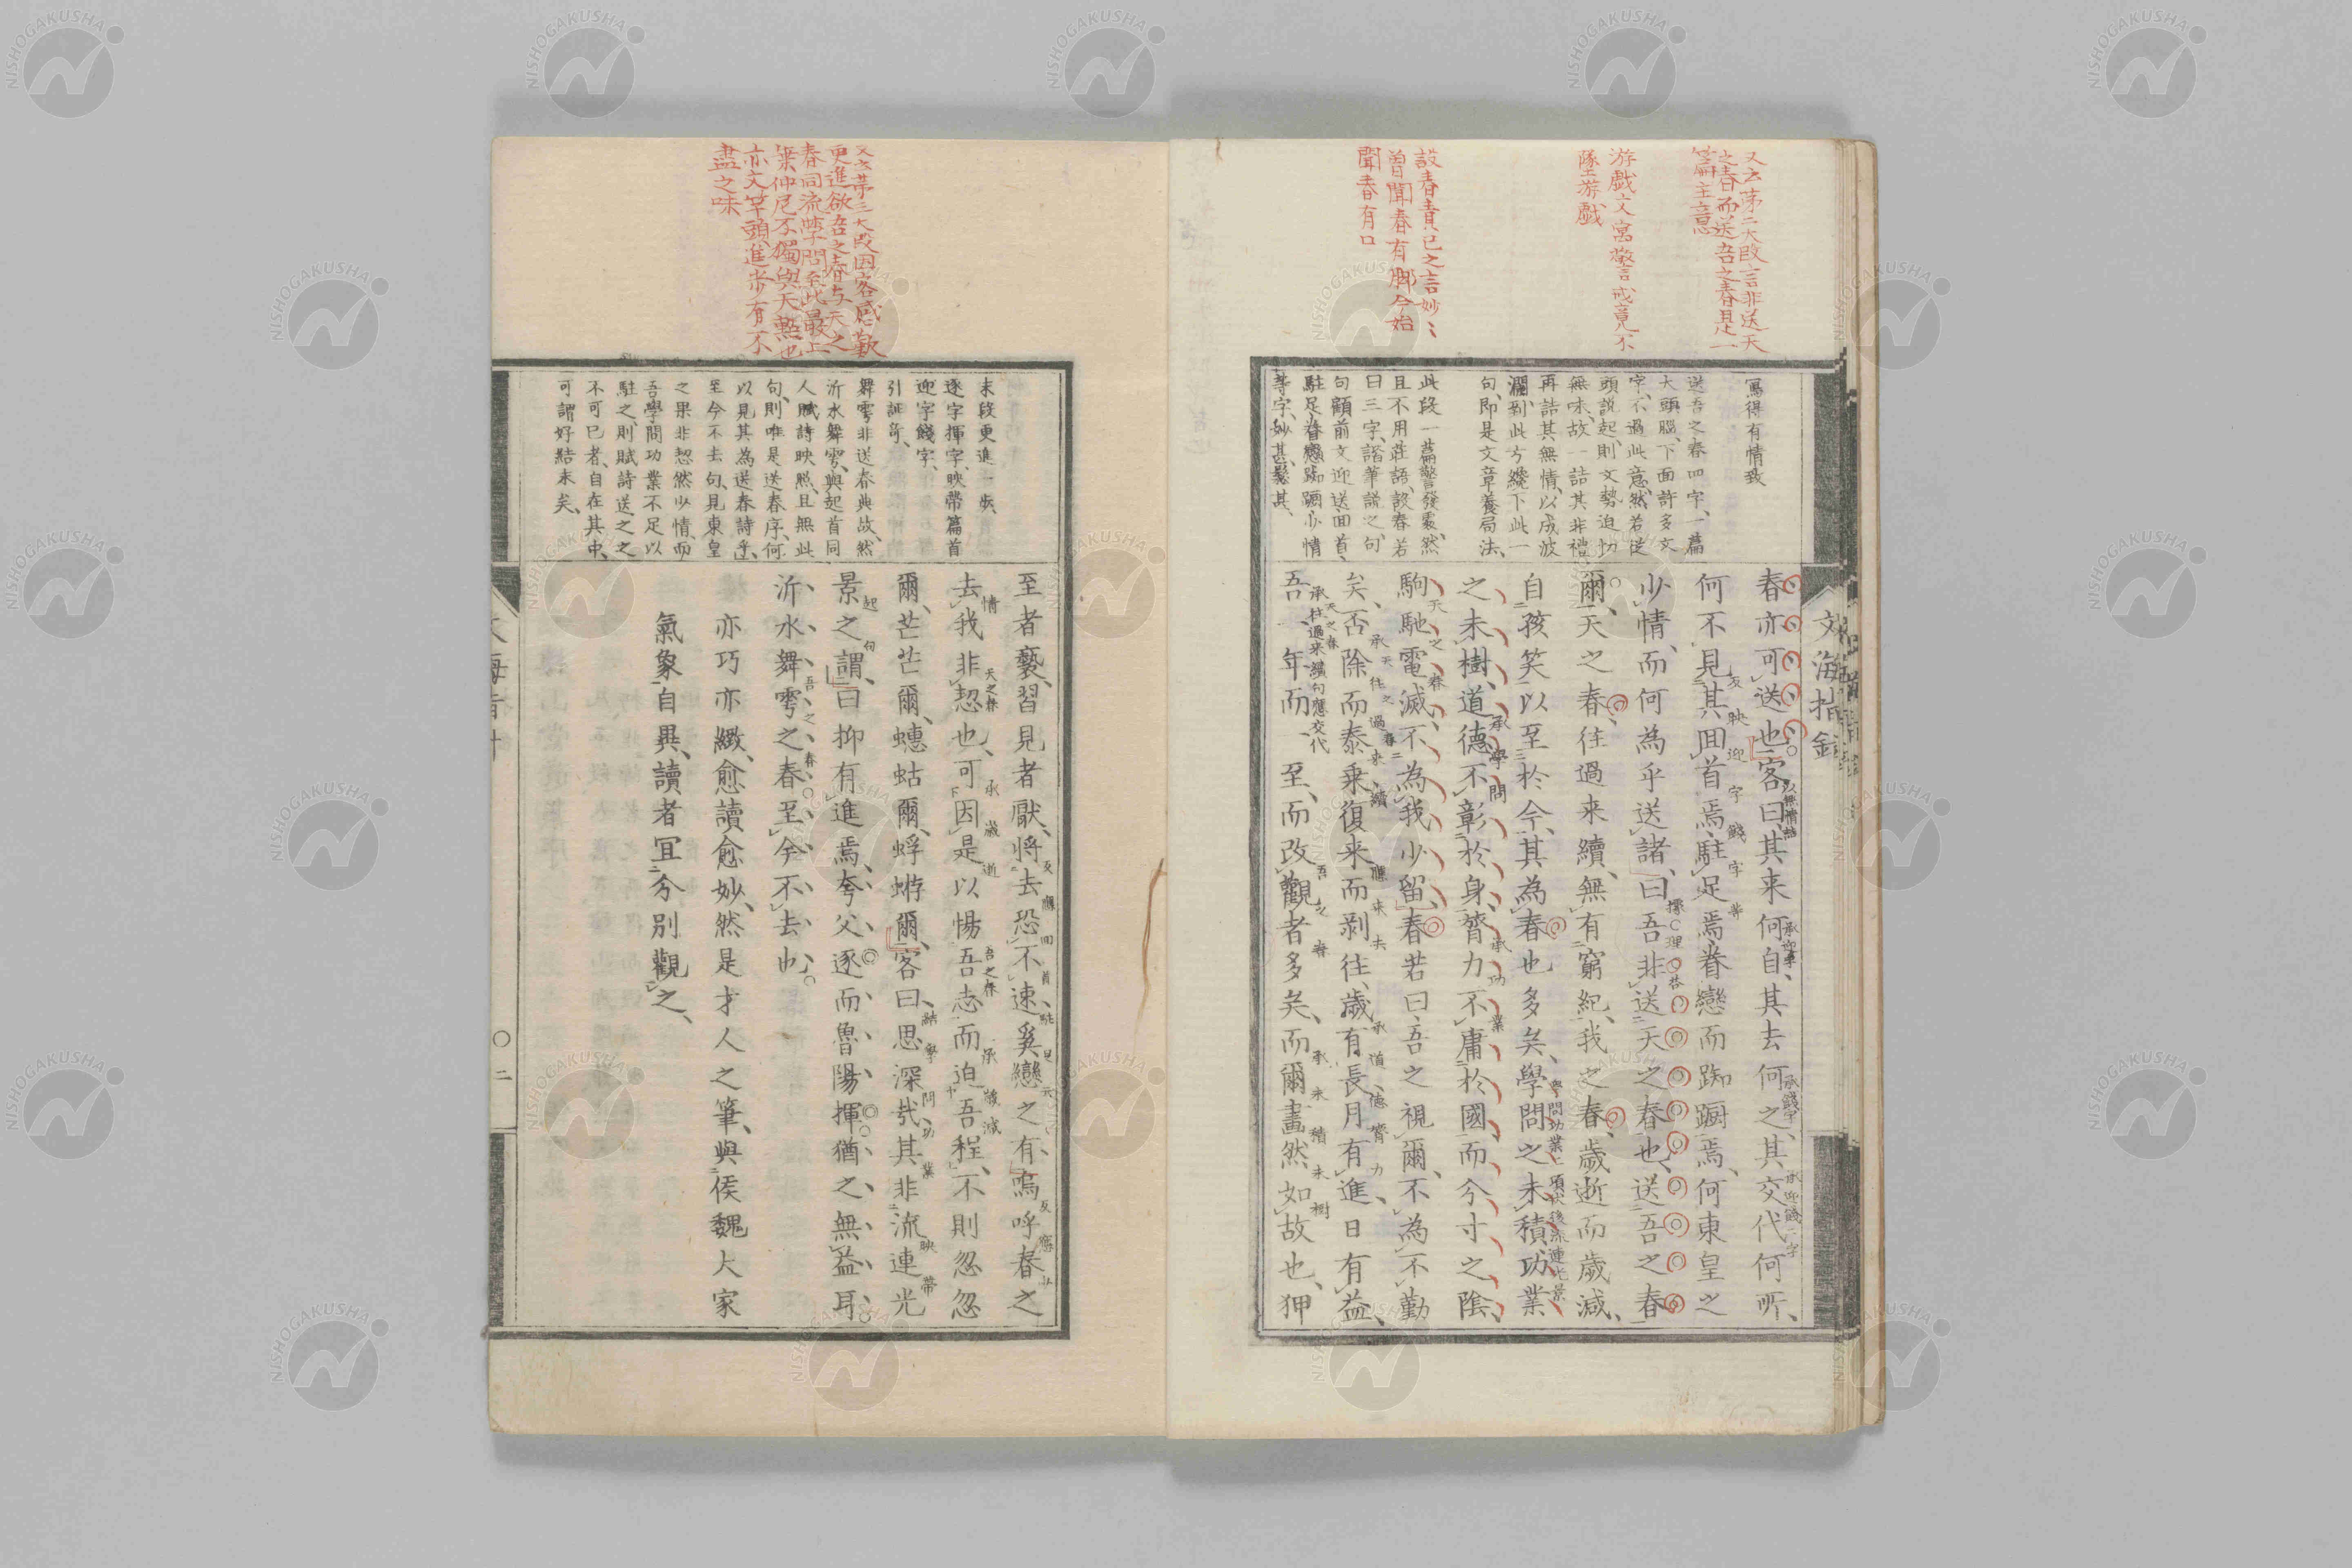 又云第二大段言非送天
之春而送吾之春是一
篇主意
游戲文寓警戒竟不
墜游戲
設春責己之言妙々
曾聞春有脚今始
聞春有口
寫得有情致
送吾之春四字、一篇
大頭腦、下面許多文
字、不過此意、然若從
頭説起、則文勢迫切
無味、故一詰其非禮
再詰其無情、以成波
瀾、到此方纔下此一
句、即是文章養局法、
此段一篇警發處、然
且不用莊語、設春若
曰三字、諧筆謔之、句
句顧前文迎送回首、
駐足眷戀踟蹰少情
等字、妙甚、
文海指針
春亦可送也、客曰、其来何自、其去何之、其交代何所、
何不見其回首焉、駐足焉、眷戀而踟蹰焉、何東皇之
少情、而何為乎送諸、曰、吾非送天之春也、送吾之春
爾、天之春、往過来續、無有窮紀、我之春、歳逝而歳減、
自孩笑以至於今、其為春也多矣、學問之未積、功業
之未樹、道德不彰於身、膂力不庸於國、而分寸之陰、
駒馳電滅、不為我少留、春若曰、吾之視爾、不為不勤
矣、否除而泰乗、復来而剥往、歳有長、月有進、日有益、
吾年而至、而改觀者多矣、而爾畫然如故也、狎
又云第三大段因客感歎
更進欲吾之春与天之
春同流学問至此最上
乗仲尼不獨與天㸃也
亦文竿頭進步有不
盡之味
末段更進一步、
逐字揮字、映帶篇首
迎字餞字、
引証奇、
舞雩非送春典故、然
沂水舞雩、與起首同
人賦詩映照、且無此
句、則唯是送春序、何
以見其為送春詩乎、
至今不去句、見東皇
之果非恝然少情、而
吾學問功業不足以
駐之、則賦詩送之之
不可已者、自在其中、
可謂好結末矣、
至者褻、習見者厭、將去恐不速、奚戀之有、嗚呼春之
去我非恝也、可因是以惕吾志而迫吾程、不則忽忽
爾、芒芒爾、蟪蛄爾、蜉蝣爾、客曰、思深哉、其非流連光
景之謂、曰抑有進焉、夸父逐而魯陽揮、猶之無益耳、
沂水舞雩之春、至今不去也、
亦巧亦緻、愈讀愈妙、然是才人之筆、與侯魏大家
氣象自異、讀者宜分別觀之、
二